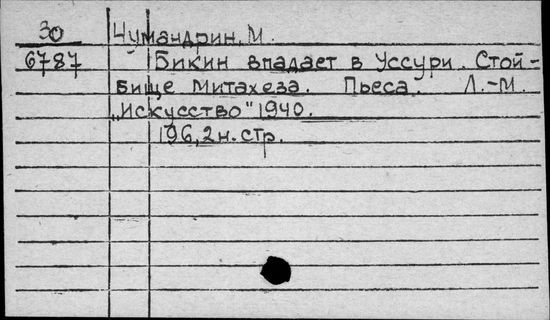 30 Чумандрин, М.
6787 Бикин впадает в Уссури. Стой-
бище Митахеза. Пьеса. Л.-М.
„Искусство" 1940.
196,2н. стр.